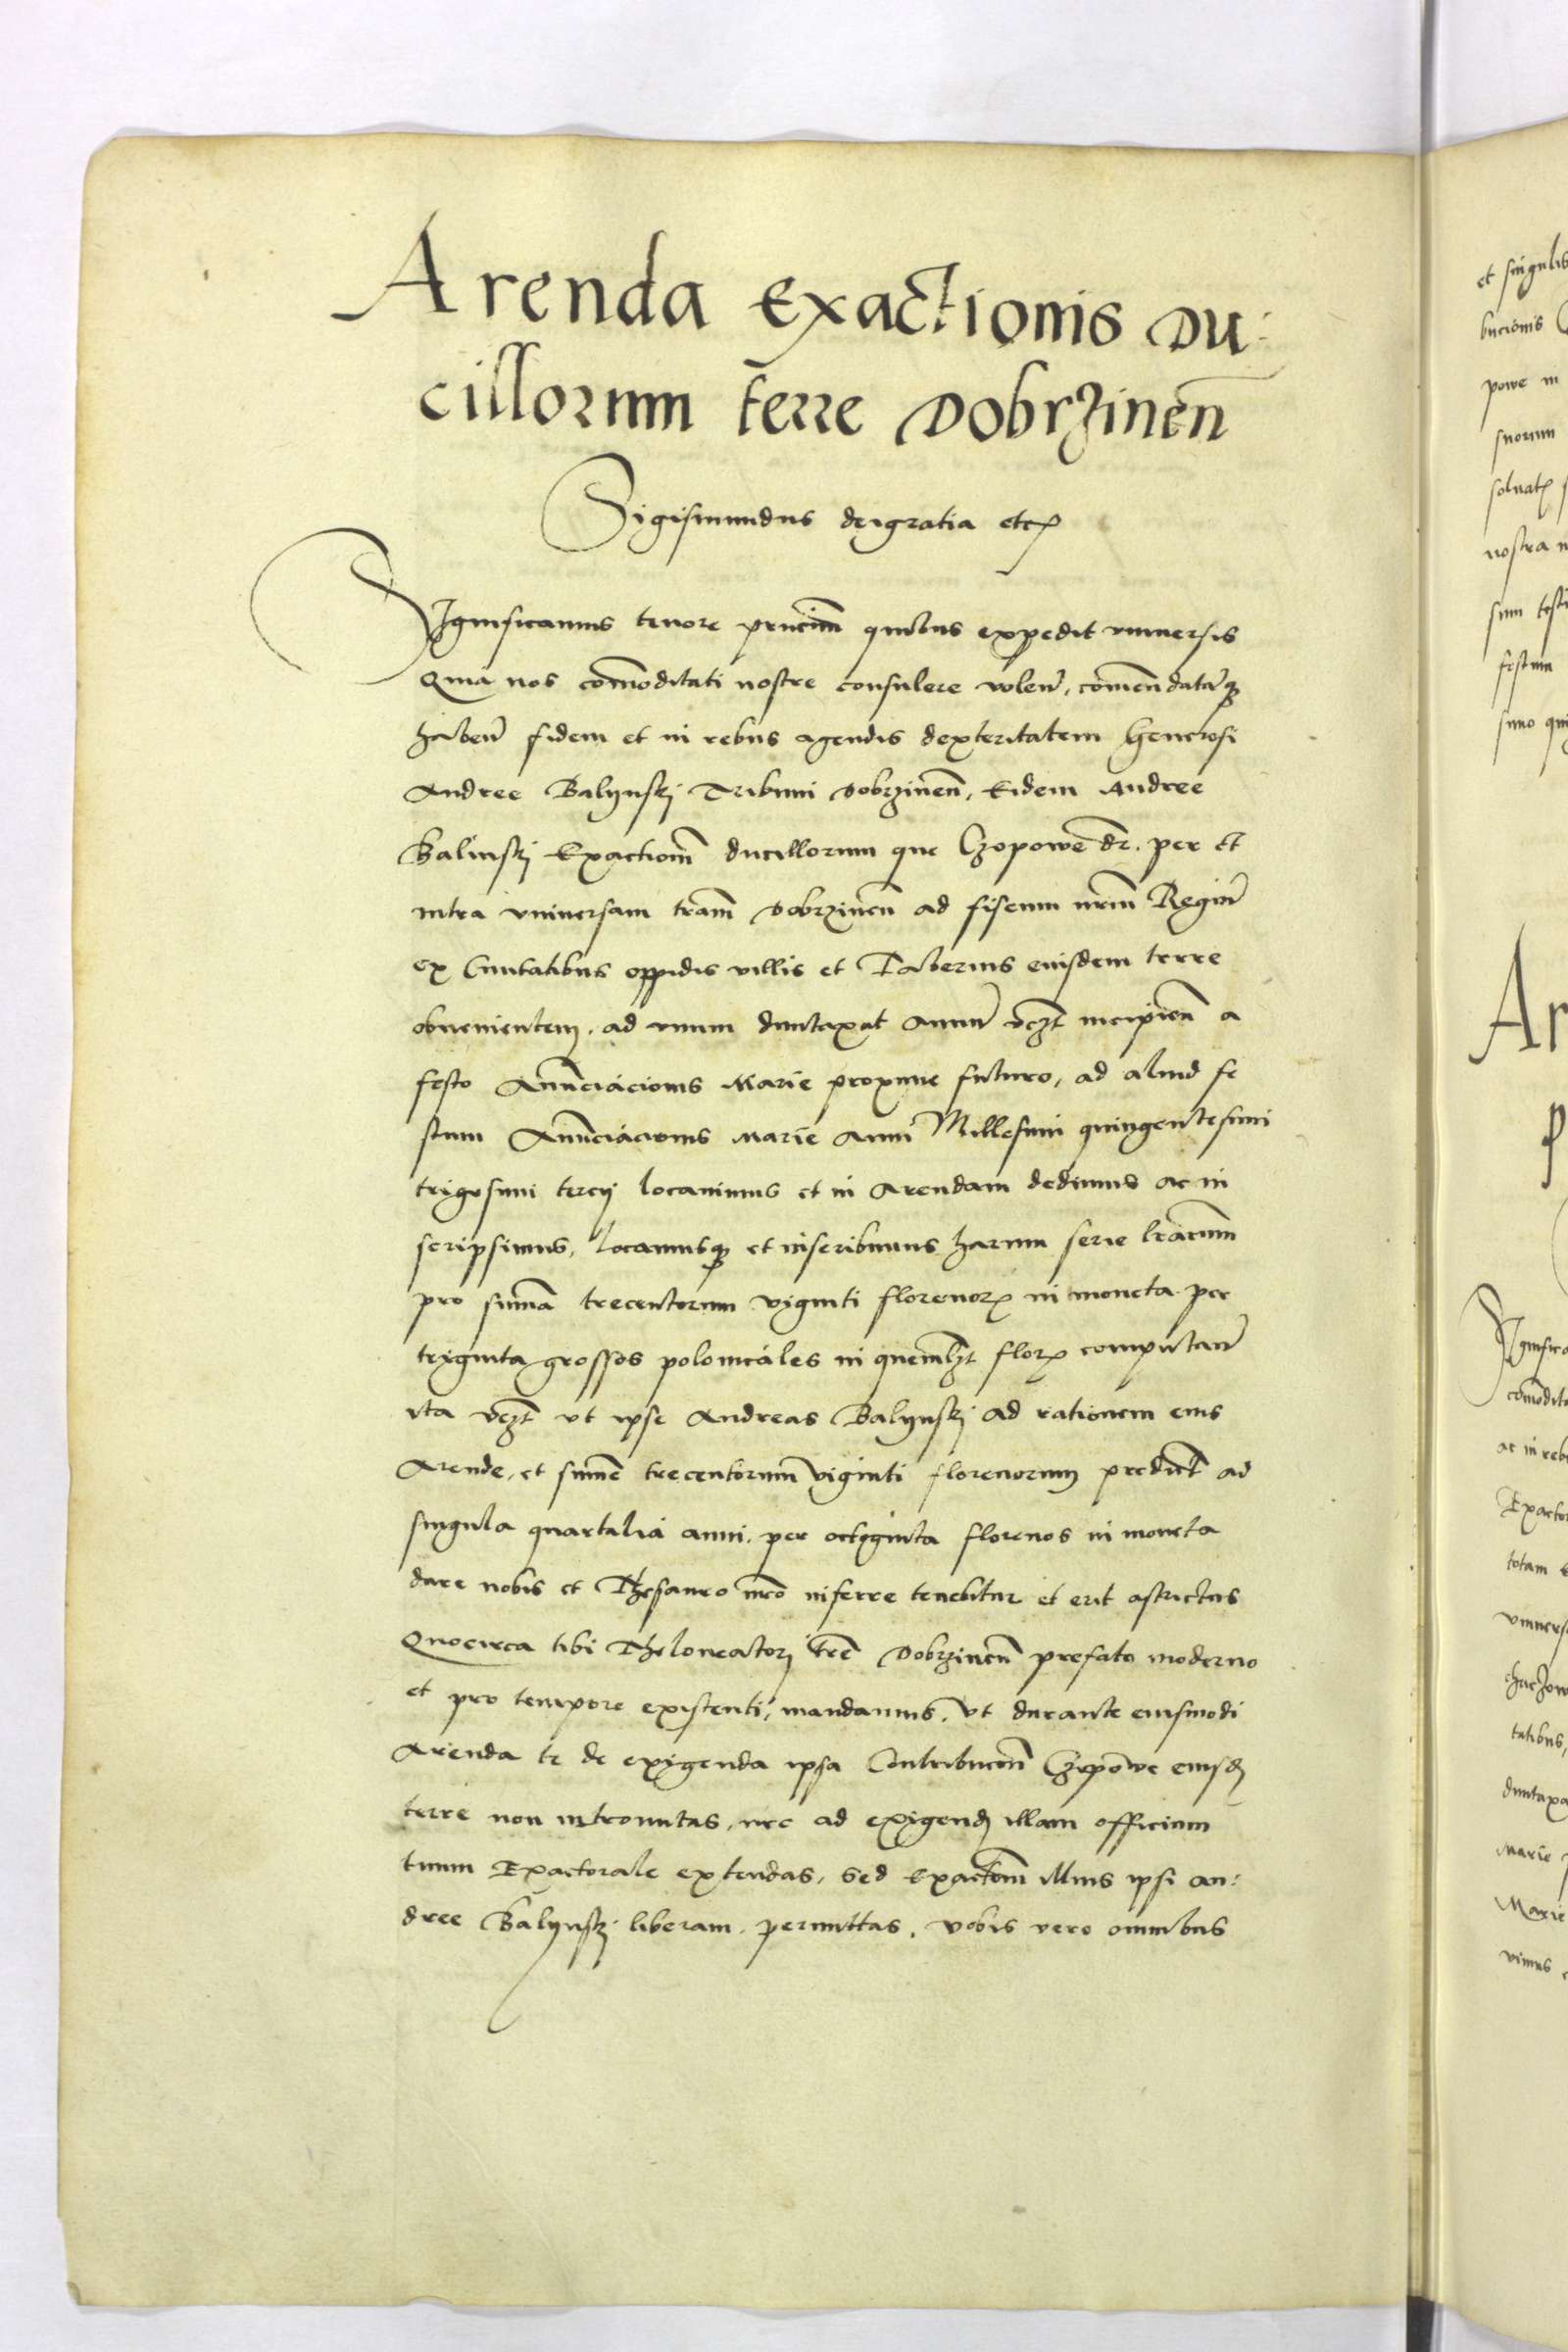 Arenda Exactionis Du-
cillorum terre Dobrzinen̄
Sigismundus dei gratia etc
Significamus tenore pn̄cium quibus expedit vniuersis
Quia nos com̄oditati nostre consulere volen̄, com̄endatāq3
haben̄ fidem et in rebus agendis dexteritatem Generosi
Andree Balynskj Tribuni Dobrzinen̄, Eidem Andree
Balinskj Exactiom̄ ducillorum que Czopowe dr̄. per et
intra vniuersam tram̄ Dobrzinen̄ ad fiscum nrm̄ Regiū
ex Ciuitatibus oppidis villis et Tabernis eiusdem terre
obuenientem, ad vnum duntaxat annū vcz̄t incipien̄ a
festo Anunciacionis Marie proxime futuro, ad aliud fe
stum Anunciacionis Marie anni Millesimi quingentesimi
trigesimi tercij locauimus et in Arendam dedimus ac in
scripsimus, locamusq3 et inscribimus harum serie lrarum̄
pro sum̄a trecentorum viginti florenor in moneta per
triginta grossos polonicales in queml3t flor computan̄
ita vcz̄t vt ipse Andreas Balynskj ad rationem eius
Arende, et sum̄e trecentorum viginti florenorum predict̄ ad
singula quartalia anni. per octoginta florenos in moneta
dare nobis et Thesauro nr̄o inferre tenebitur et erit astrictus
Quocirca tibi Theloneatorj trē Dobrzinen̄ prefato moderno
et pro tempore existenti, mandamus, vt durante eiusmodi
Arenda te de exigenda ipsa Contribucon̄ Czopowe eiusd
terre non intromittas, nec ad exigend illam officium
tuum Exactorale extendas, Sed Exactom̄ illius ipsi An-
dree Balynskj liberam permittas. vobis vero omnibus
et singulis
bucionis
powe in
suorum
nostra
Ar
Exactio
totam
vniuers
tatibus,
duntaxa
Marie
Marie
vimus